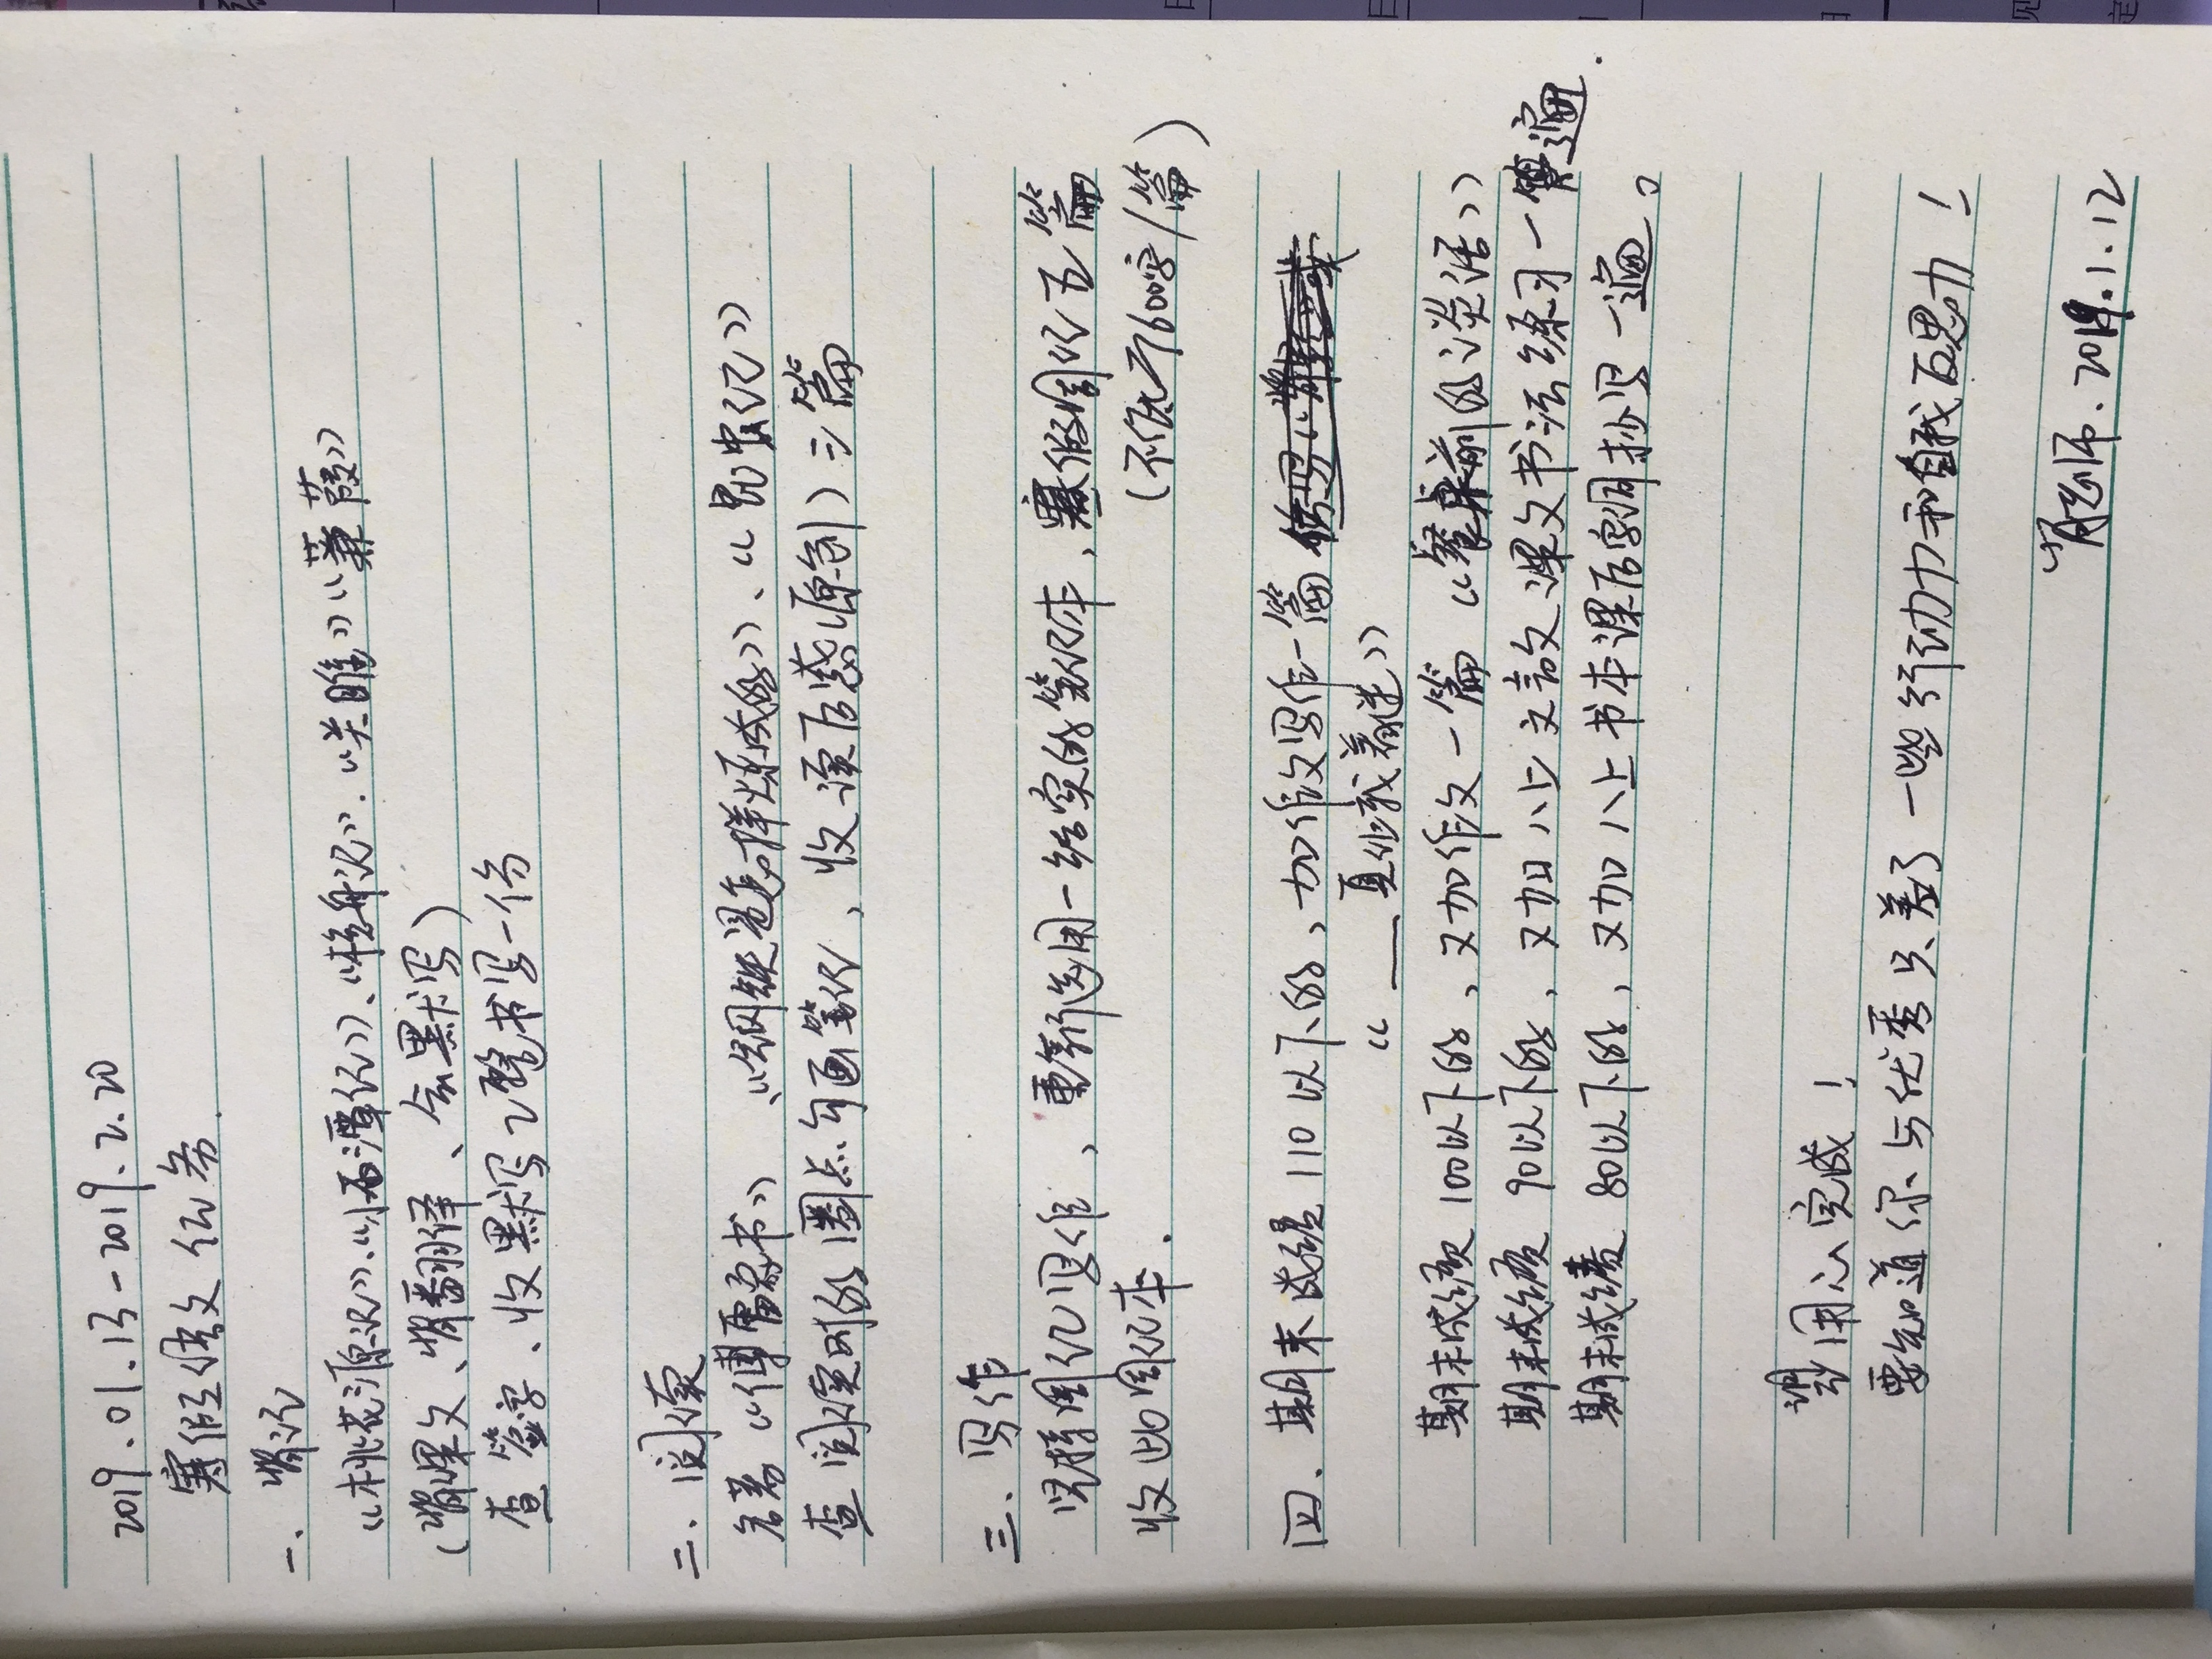 2019.01.13-2019.2.20
寒假语文任务.
一、背记
《桃花源记》、《小石潭记》、《核舟记》.《关雎》《蒹葭》
(背课文、背翻译、会默写)
查签字、收默写 工整书写一份
二、阅读
名著《傅雷家书》、《钢铁是怎样炼成的》、《昆虫记》
查阅读时的圈点勾画笔记，收读后感(原创)三篇
三、写作
坚持周记写作，重新选用一结实的笔记本，寒假周记五篇
收此周记本. (不低于600字/篇)
四、期末成绩110以下的，加作文写作一篇
《___真让我着迷》
期末成绩100以下的，又加作文一篇《餐桌前的谈话》
期末成绩90以下的，又加八上文言文课文书法练习一遍.
期末成绩80以下的，又加八上书本课后字词抄写一遍。
望用心完成!
要知道你与优秀只差了一些行动力和自我反思力!
肖老师.2019.1.12